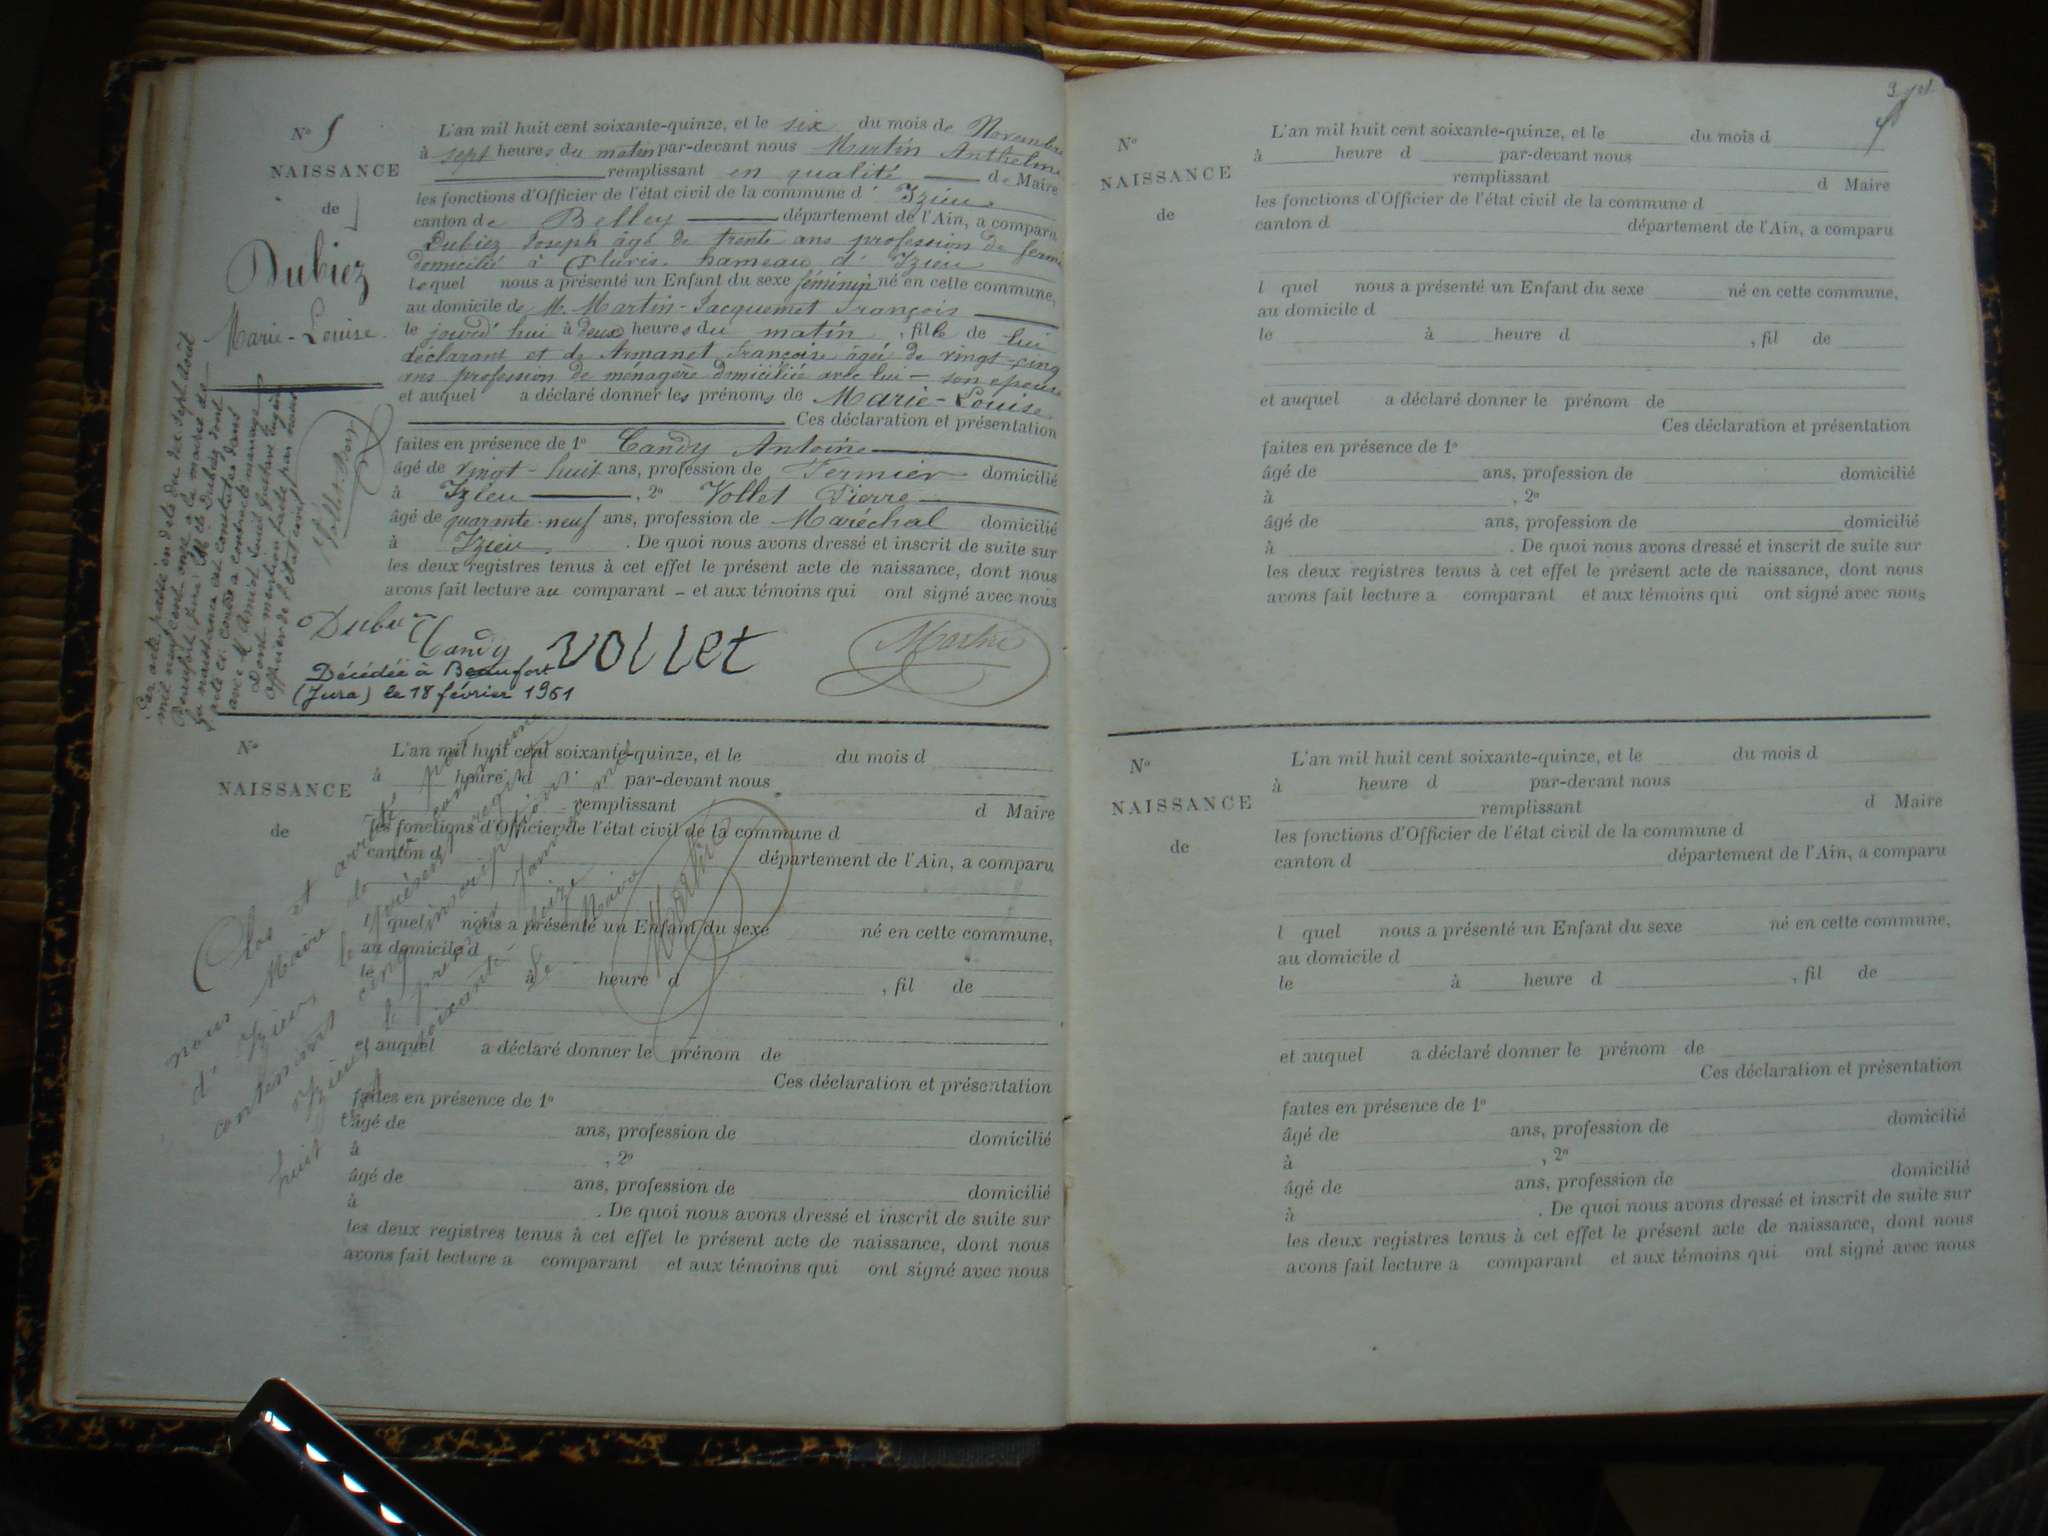 N° 5
NAISSANCE
de
Dubiez
Marie-Louise
L'an mil huit cent soixante-quinze, et le six du mois de Novembre
à sept heures du matin par-devant nous Martin Anthelme
remplissant en qualité de Maire
les fonctions d'Officier de l'état civil de la commune d'Izieu
canton de Belley département de l'Ain, a comparu
Dubiez Joseph âgé de trente ans profession de fermier
domicilié à Pluvis hameau d'Izieu
lequel nous a présenté un Enfant du sexe féminin né en cette commune,
au domicile de M. Martin-Jacquemet François
le jourd'hui à deux heures du matin, fille de lui
déclarant et de Armanet Françoise âgée de vingt-cinq
ans profession de ménagère domiciliée avec lui - son épouse
et auquel a déclaré donner les prénoms de Marie-Louise
Ces déclaration et présentation
faites en présence de 1° Candy Antoine
âgé de vingt-huit ans, profession de Fermier domicilié
à Izieu, 2° Vollet Pierre
âgé de quarante-neuf ans, profession de Maréchal domicilié
à Izieu. De quoi nous avons dressé et inscrit de suite sur
les deux registres tenus à cet effet le présent acte de naissance, dont nous
avons fait lecture au comparant - et aux témoins qui ont signé avec nous
Dubiez Candy VOLLET Martin
Décédée à Beaufort
(Jura) le 18 février 1961
Par acte passé en date du dix sept août
mil neuf cent onze à la mairie de
Beaufort Jura Melle Dubiez dont
la naissance est constatée dans
l'acte ci-contre a contracté mariage
avec M. Amiet Louis Gustave Eugène
Dont mention faite par nous
officier de l'état civil
N°
NAISSANCE
de
L'an mil huit cent soixante-quinze, et le du mois d
à heure d par-devant nous
remplissant d Maire
les fonctions d'Officier de l'état civil de la commune d
canton d département de l'Ain, a comparu
l quel nous a présenté un Enfant du sexe né en cette commune,
au domicile d
le à heure d , fil de
et auquel a déclaré donner le prénom de
Ces déclaration et présentation
faites en présence de 1°
âgé de ans, profession de domicilié
à , 2°
âgé de ans, profession de domicilié
à . De quoi nous avons dressé et inscrit de suite sur
les deux registres tenus à cet effet le présent acte de naissance, dont nous
avons fait lecture a comparant et aux témoins qui ont signé avec nous
Clos et arrêté par
nous Maire de la commune
d'Izieu, le présent registre
contenant cinq inscriptions.
Izieu, le premier janvier mil
huit cent soixante seize
Le Maire
Martin
N°
NAISSANCE
de
L'an mil huit cent soixante-quinze, et le du mois d
à heure d par-devant nous
remplissant d Maire
les fonctions d'Officier de l'état civil de la commune d
canton d département de l'Ain, a comparu
l quel nous a présenté un Enfant du sexe né en cette commune,
au domicile d
le à heure d , fil de
et auquel a déclaré donner le prénom de
Ces déclaration et présentation
faites en présence de 1°
âgé de ans, profession de domicilié
à , 2°
âgé de ans, profession de domicilié
à . De quoi nous avons dressé et inscrit de suite sur
les deux registres tenus à cet effet le présent acte de naissance, dont nous
avons fait lecture a comparant et aux témoins qui ont signé avec nous
N°
NAISSANCE
de
L'an mil huit cent soixante-quinze, et le du mois d
à heure d par-devant nous
remplissant d Maire
les fonctions d'Officier de l'état civil de la commune d
canton d département de l'Ain, a comparu
l quel nous a présenté un Enfant du sexe né en cette commune,
au domicile d
le à heure d , fil de
et auquel a déclaré donner le prénom de
Ces déclaration et présentation
faites en présence de 1°
âgé de ans, profession de domicilié
à , 2°
âgé de ans, profession de domicilié
à . De quoi nous avons dressé et inscrit de suite sur
les deux registres tenus à cet effet le présent acte de naissance, dont nous
avons fait lecture a comparant et aux témoins qui ont signé avec nous